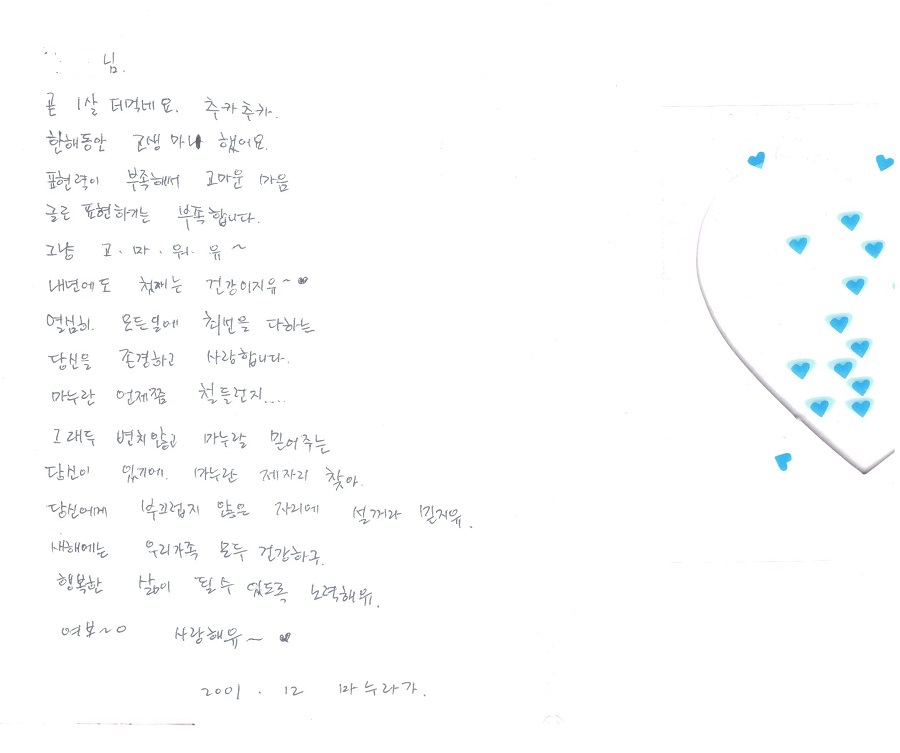 님.
곧 1살 더먹네요. 추카추카.
한해동안 고생 마니 했어요.
표현력이 부족해서 고마운 마음
글로 표현하기는 부족합니다.
그냥 고·마·워·유~
내년에도 첫째는 건강이지유~♥
열심히. 모든일에 최선을 다하는
당신을 존경하고 사랑합니다.
마누란 언제쯤 철들런지....
그래두 변치않고 마누랄 믿어주는
당신이 있기에. 마누란 제자리 찾아.
당신에게 부끄럽지 않은 자리에 설꺼라 믿지유.
새해에는 우리가족 모두 건강하구.
행복한 삶이 될수 있도록 노력해유.
여보~o 사랑해유~ ♥
2001. 12 마누라가.